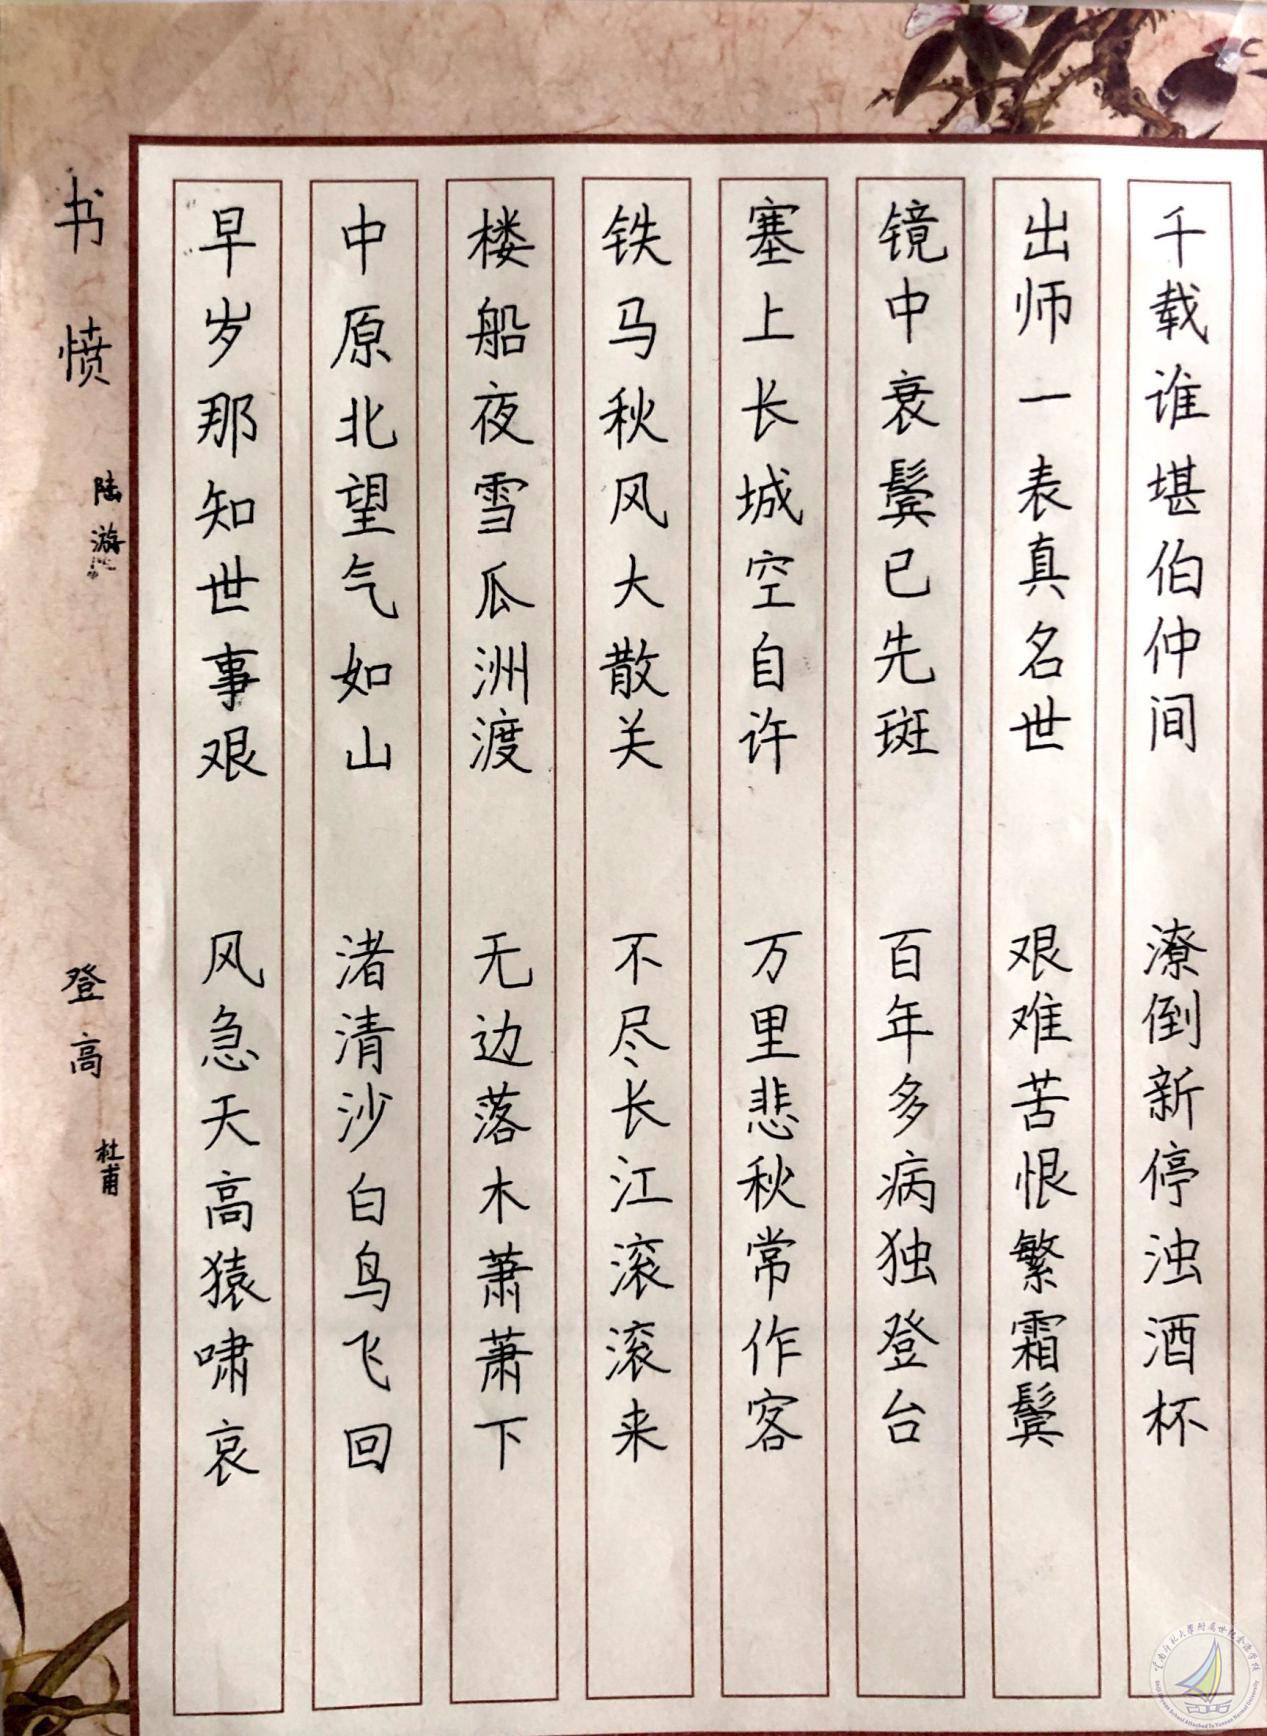 书愤
陆游
早岁那知世事艰
中原北望气如山
楼船夜雪瓜洲渡
铁马秋风大散关
塞上长城空自许
镜中衰鬓已先斑
出师一表真名世
千载谁堪伯仲间
登高
杜甫
风急天高猿啸哀
渚清沙白鸟飞回
无边落木萧萧下
不尽长江滚滚来
万里悲秋常作客
百年多病独登台
艰难苦恨繁霜鬓
潦倒新停浊酒杯